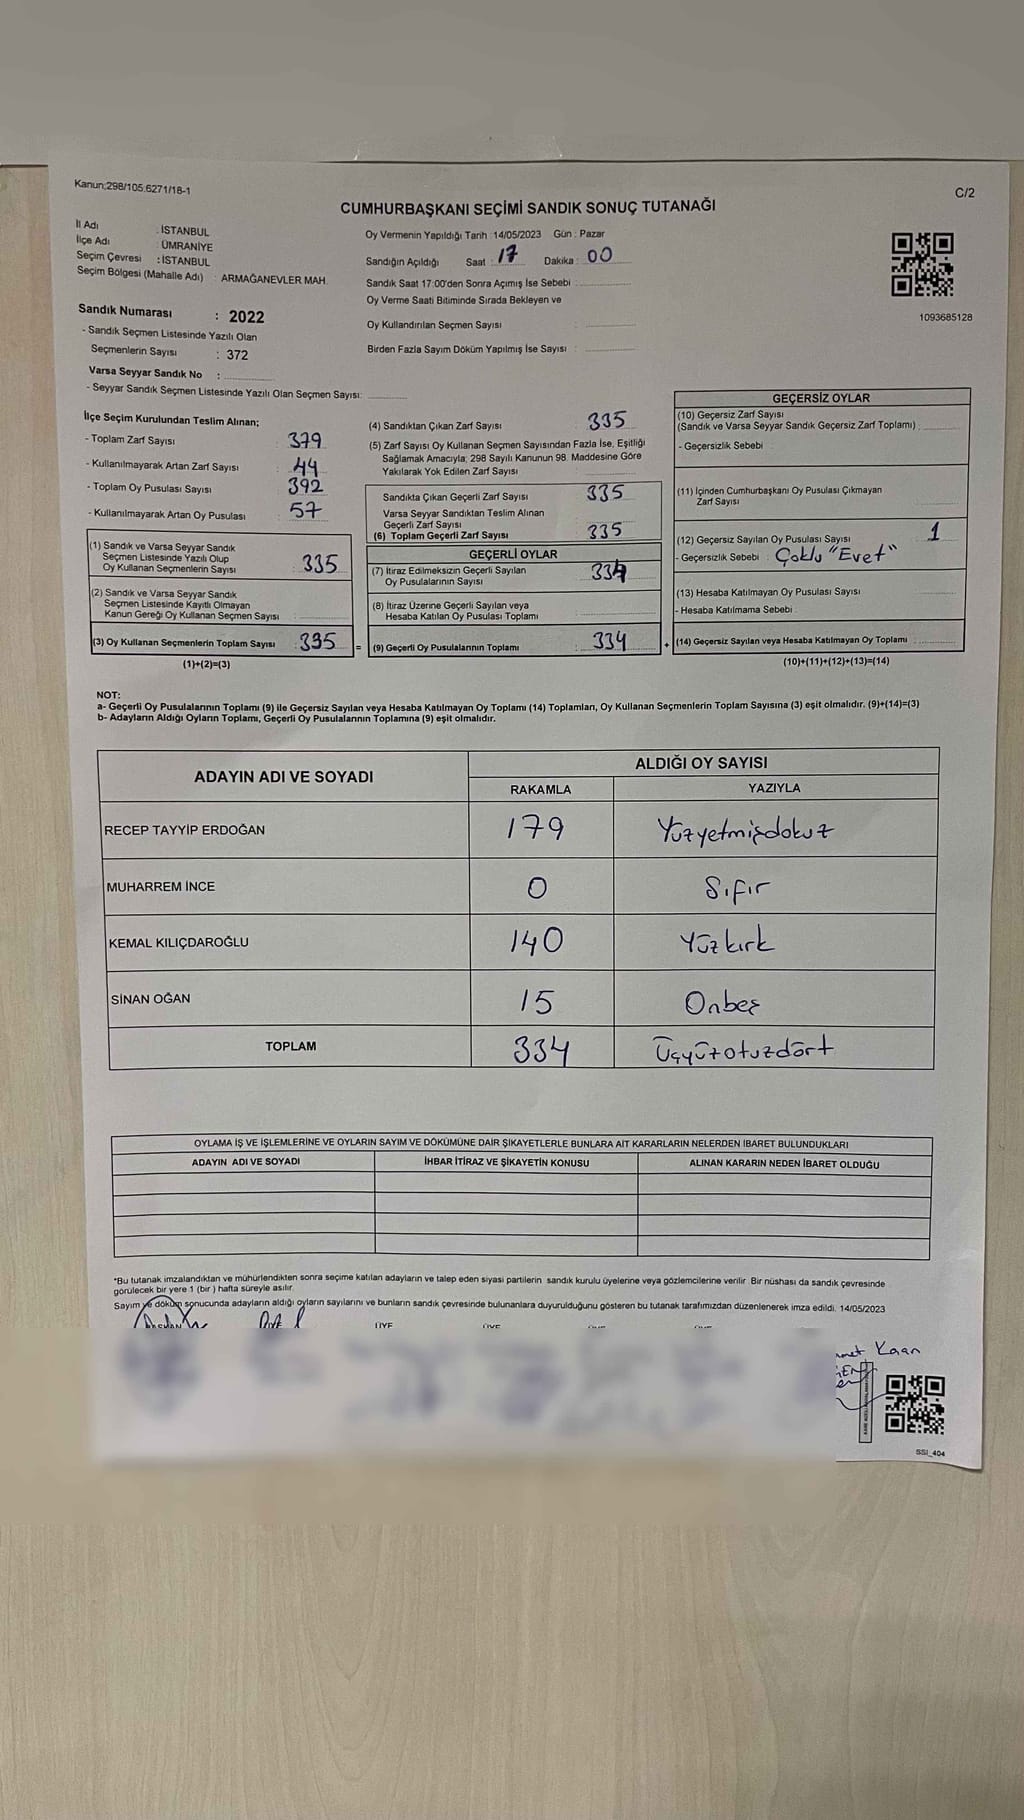 Kanun:298/105.6271/18-1
C/2
CUMHURBAŞKANI SEÇİMİ SANDIK SONUÇ TUTANAĞI
İl Adı : İSTANBUL
İlçe Adı : ÜMRANİYE
Seçim Çevresi : İSTANBUL
Seçim Bölgesi (Mahalle Adı) : ARMAĞANEVLER MAH.
Sandık Numarası : 2022
- Sandık Seçmen Listesinde Yazılı Olan
Seçmenlerin Sayısı : 372
Varsa Seyyar Sandık No :
- Seyyar Sandık Seçmen Listesinde Yazılı Olan Seçmen Sayısı:
Oy Vermenin Yapıldığı Tarih : 14/05/2023 Gün : Pazar
Sandığın Açıldığı Saat : 17 Dakika : 00
Sandık Saat 17:00'den Sonra Açımış İse Sebebi :
Oy Verme Saati Bitiminde Sırada Bekleyen ve
Oy Kullandırılan Seçmen Sayısı :
Birden Fazla Sayım Döküm Yapılmış İse Sayısı :
1093685128
İlçe Seçim Kurulundan Teslim Alınan;
- Toplam Zarf Sayısı : 379
- Kullanılmayarak Artan Zarf Sayısı : 44
- Toplam Oy Pusulası Sayısı : 392
- Kullanılmayarak Artan Oy Pusulası : 57
(1) Sandık ve Varsa Seyyar Sandık
Seçmen Listesinde Yazılı Olup
Oy Kullanan Seçmenlerin Sayısı : 335
(2) Sandık ve Varsa Seyyar Sandık
Seçmen Listesinde Kayıtlı Olmayan
Kanun Gereği Oy Kullanan Seçmen Sayısı :
(3) Oy Kullanan Seçmenlerin Toplam Sayısı : 335 =
(1)+(2)=(3)
(4) Sandıktan Çıkan Zarf Sayısı : 335
(5) Zarf Sayısı Oy Kullanan Seçmen Sayısından Fazla İse, Eşitliği
Sağlamak Amacıyla; 298 Sayılı Kanunun 98. Maddesine Göre
Yakılarak Yok Edilen Zarf Sayısı :
Sandıkta Çıkan Geçerli Zarf Sayısı : 335
Varsa Seyyar Sandıktan Teslim Alınan
Geçerli Zarf Sayısı :
(6) Toplam Geçerli Zarf Sayısı : 335
GEÇERLİ OYLAR
(7) İtiraz Edilmeksizin Geçerli Sayılan
Oy Pusulalarının Sayısı : 334
(8) İtiraz Üzerine Geçerli Sayılan veya
Hesaba Katılan Oy Pusulası Toplamı :
(9) Geçerli Oy Pusulalarının Toplamı : 334 +
GEÇERSİZ OYLAR
(10) Geçersiz Zarf Sayısı
(Sandık ve Varsa Seyyar Sandık Geçersiz Zarf Toplamı) :
- Geçersizlik Sebebi :
(11) İçinden Cumhurbaşkanı Oy Pusulası Çıkmayan
Zarf Sayısı :
(12) Geçersiz Sayılan Oy Pusulası Sayısı : 1
- Geçersizlik Sebebi : Çoklu "Evet"
(13) Hesaba Katılmayan Oy Pusulası Sayısı :
- Hesaba Katılmama Sebebi :
(14) Geçersiz Sayılan veya Hesaba Katılmayan Oy Toplamı :
(10)+(11)+(12)+(13)=(14)
NOT:
a- Geçerli Oy Pusulalarının Toplamı (9) ile Geçersiz Sayılan veya Hesaba Katılmayan Oy Toplamı (14) Toplamları, Oy Kullanan Seçmenlerin Toplam Sayısına (3) eşit olmalıdır. (9)+(14)=(3)
b- Adayların Aldığı Oyların Toplamı, Geçerli Oy Pusulalarının Toplamına (9) eşit olmalıdır.
ADAYIN ADI VE SOYADI
ALDIĞI OY SAYISI
RAKAMLA YAZIYLA
RECEP TAYYİP ERDOĞAN 179 Yüzyetmişdokuz
MUHARREM İNCE 0 Sıfır
KEMAL KILIÇDAROĞLU 140 Yüzkırk
SİNAN OĞAN 15 Onbeş
TOPLAM 334 Üçyüzotuzdört
OYLAMA İŞ VE İŞLEMLERİNE VE OYLARIN SAYIM VE DÖKÜMÜNE DAİR ŞİKAYETLERLE BUNLARA AİT KARARLARIN NELERDEN İBARET BULUNDUKLARI
ADAYIN ADI VE SOYADI İHBAR İTİRAZ VE ŞİKAYETİN KONUSU ALINAN KARARIN NEDEN İBARET OLDUĞU
*Bu tutanak imzalandıktan ve mühürlendikten sonra seçime katılan adayların ve talep eden siyasi partilerin sandık kurulu üyelerine veya gözlemcilerine verilir. Bir nüshası da sandık çevresinde
görülecek bir yere 1 (bir) hafta süreyle asılır.
Sayım ve döküm sonucunda adayların aldığı oyların sayılarını ve bunların sandık çevresinde bulunanlara duyurulduğunu gösteren bu tutanak tarafımızdan düzenlenerek imza edildi. 14/05/2023
ÜYE
Kaan
SSI_404